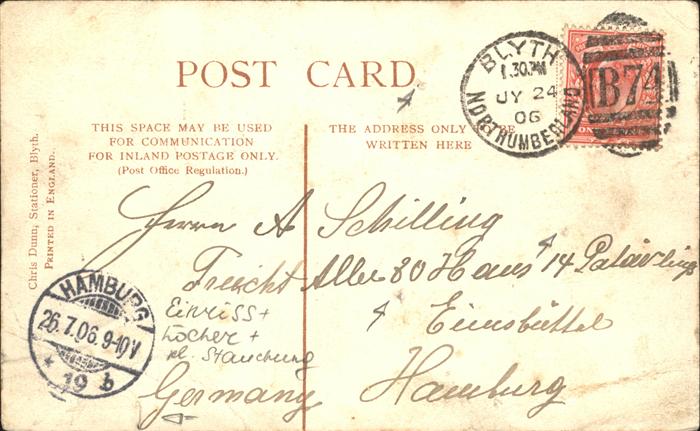 POST CARD
THIS SPACE MAY BE USED
FOR COMMUNICATION
FOR INLAND POSTAGE ONLY.
(Post Office Regulation.)
THE ADDRESS ONLY TO BE
WRITTEN HERE
Chris Dunn, Stationer, Blyth.
PRINTED IN ENGLAND.
BLYTH
1.30PM
JY 24
06
NORTHUMBERLAND
B74
Herrn A Schilling
Allee 80 Haus 14
Eimsbüttel
Hamburg
Germany
Einriss +
Löcher +
kl. Stauchung
HAMBURG
26.7.06.9-10V
* 19 b